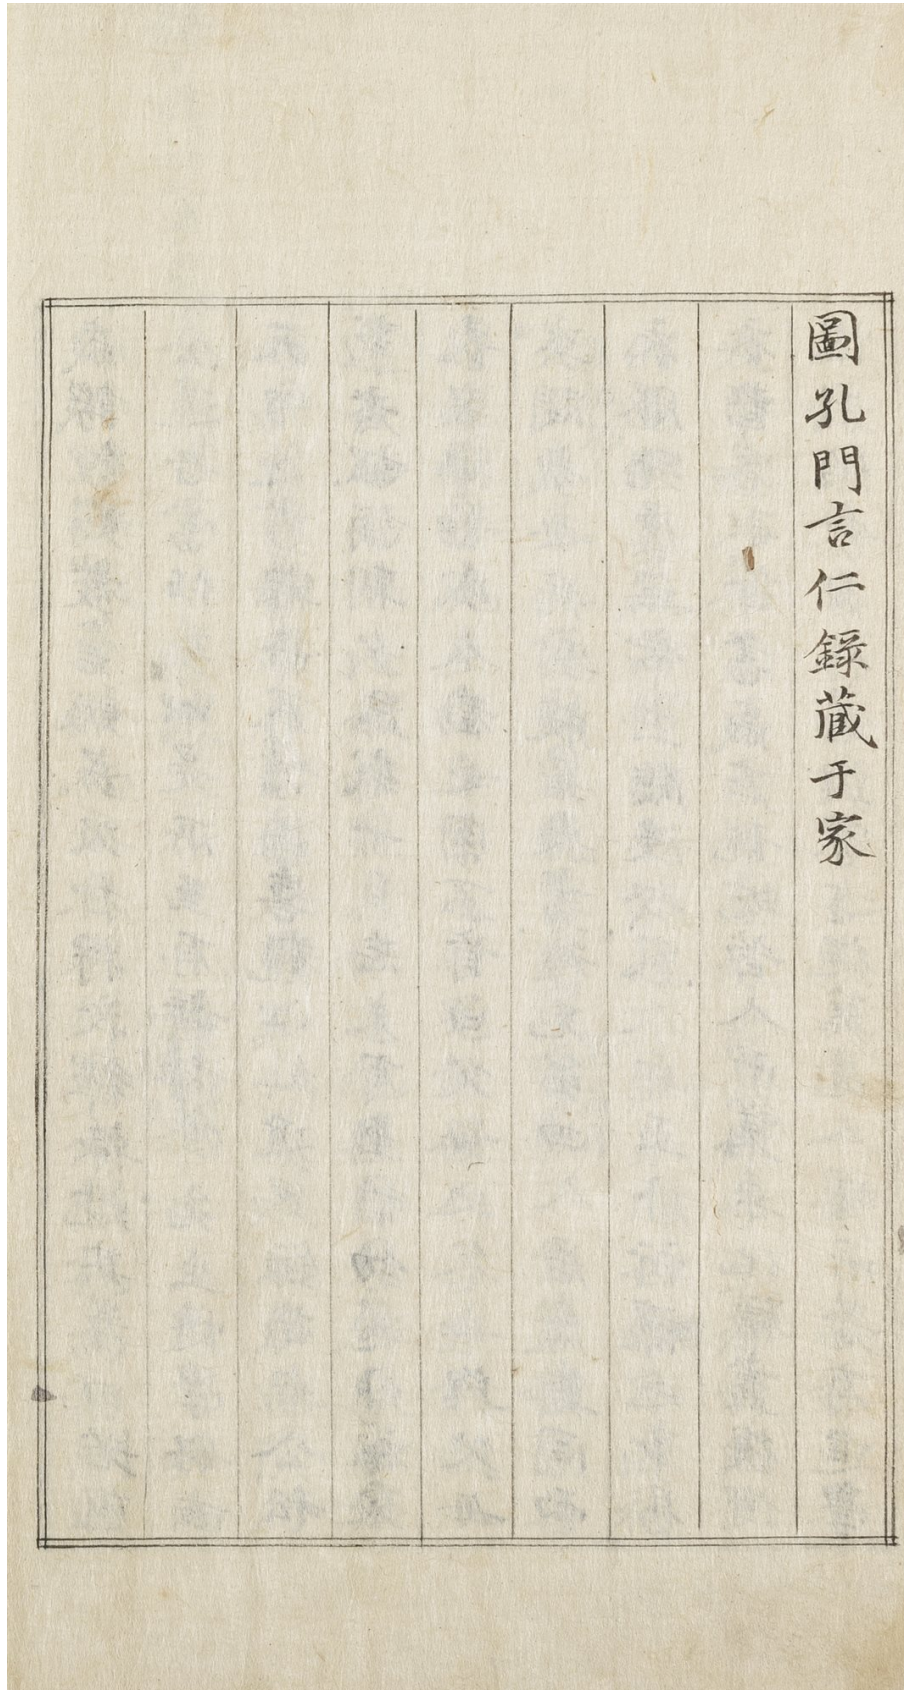 圖孔門言仁錄藏于家